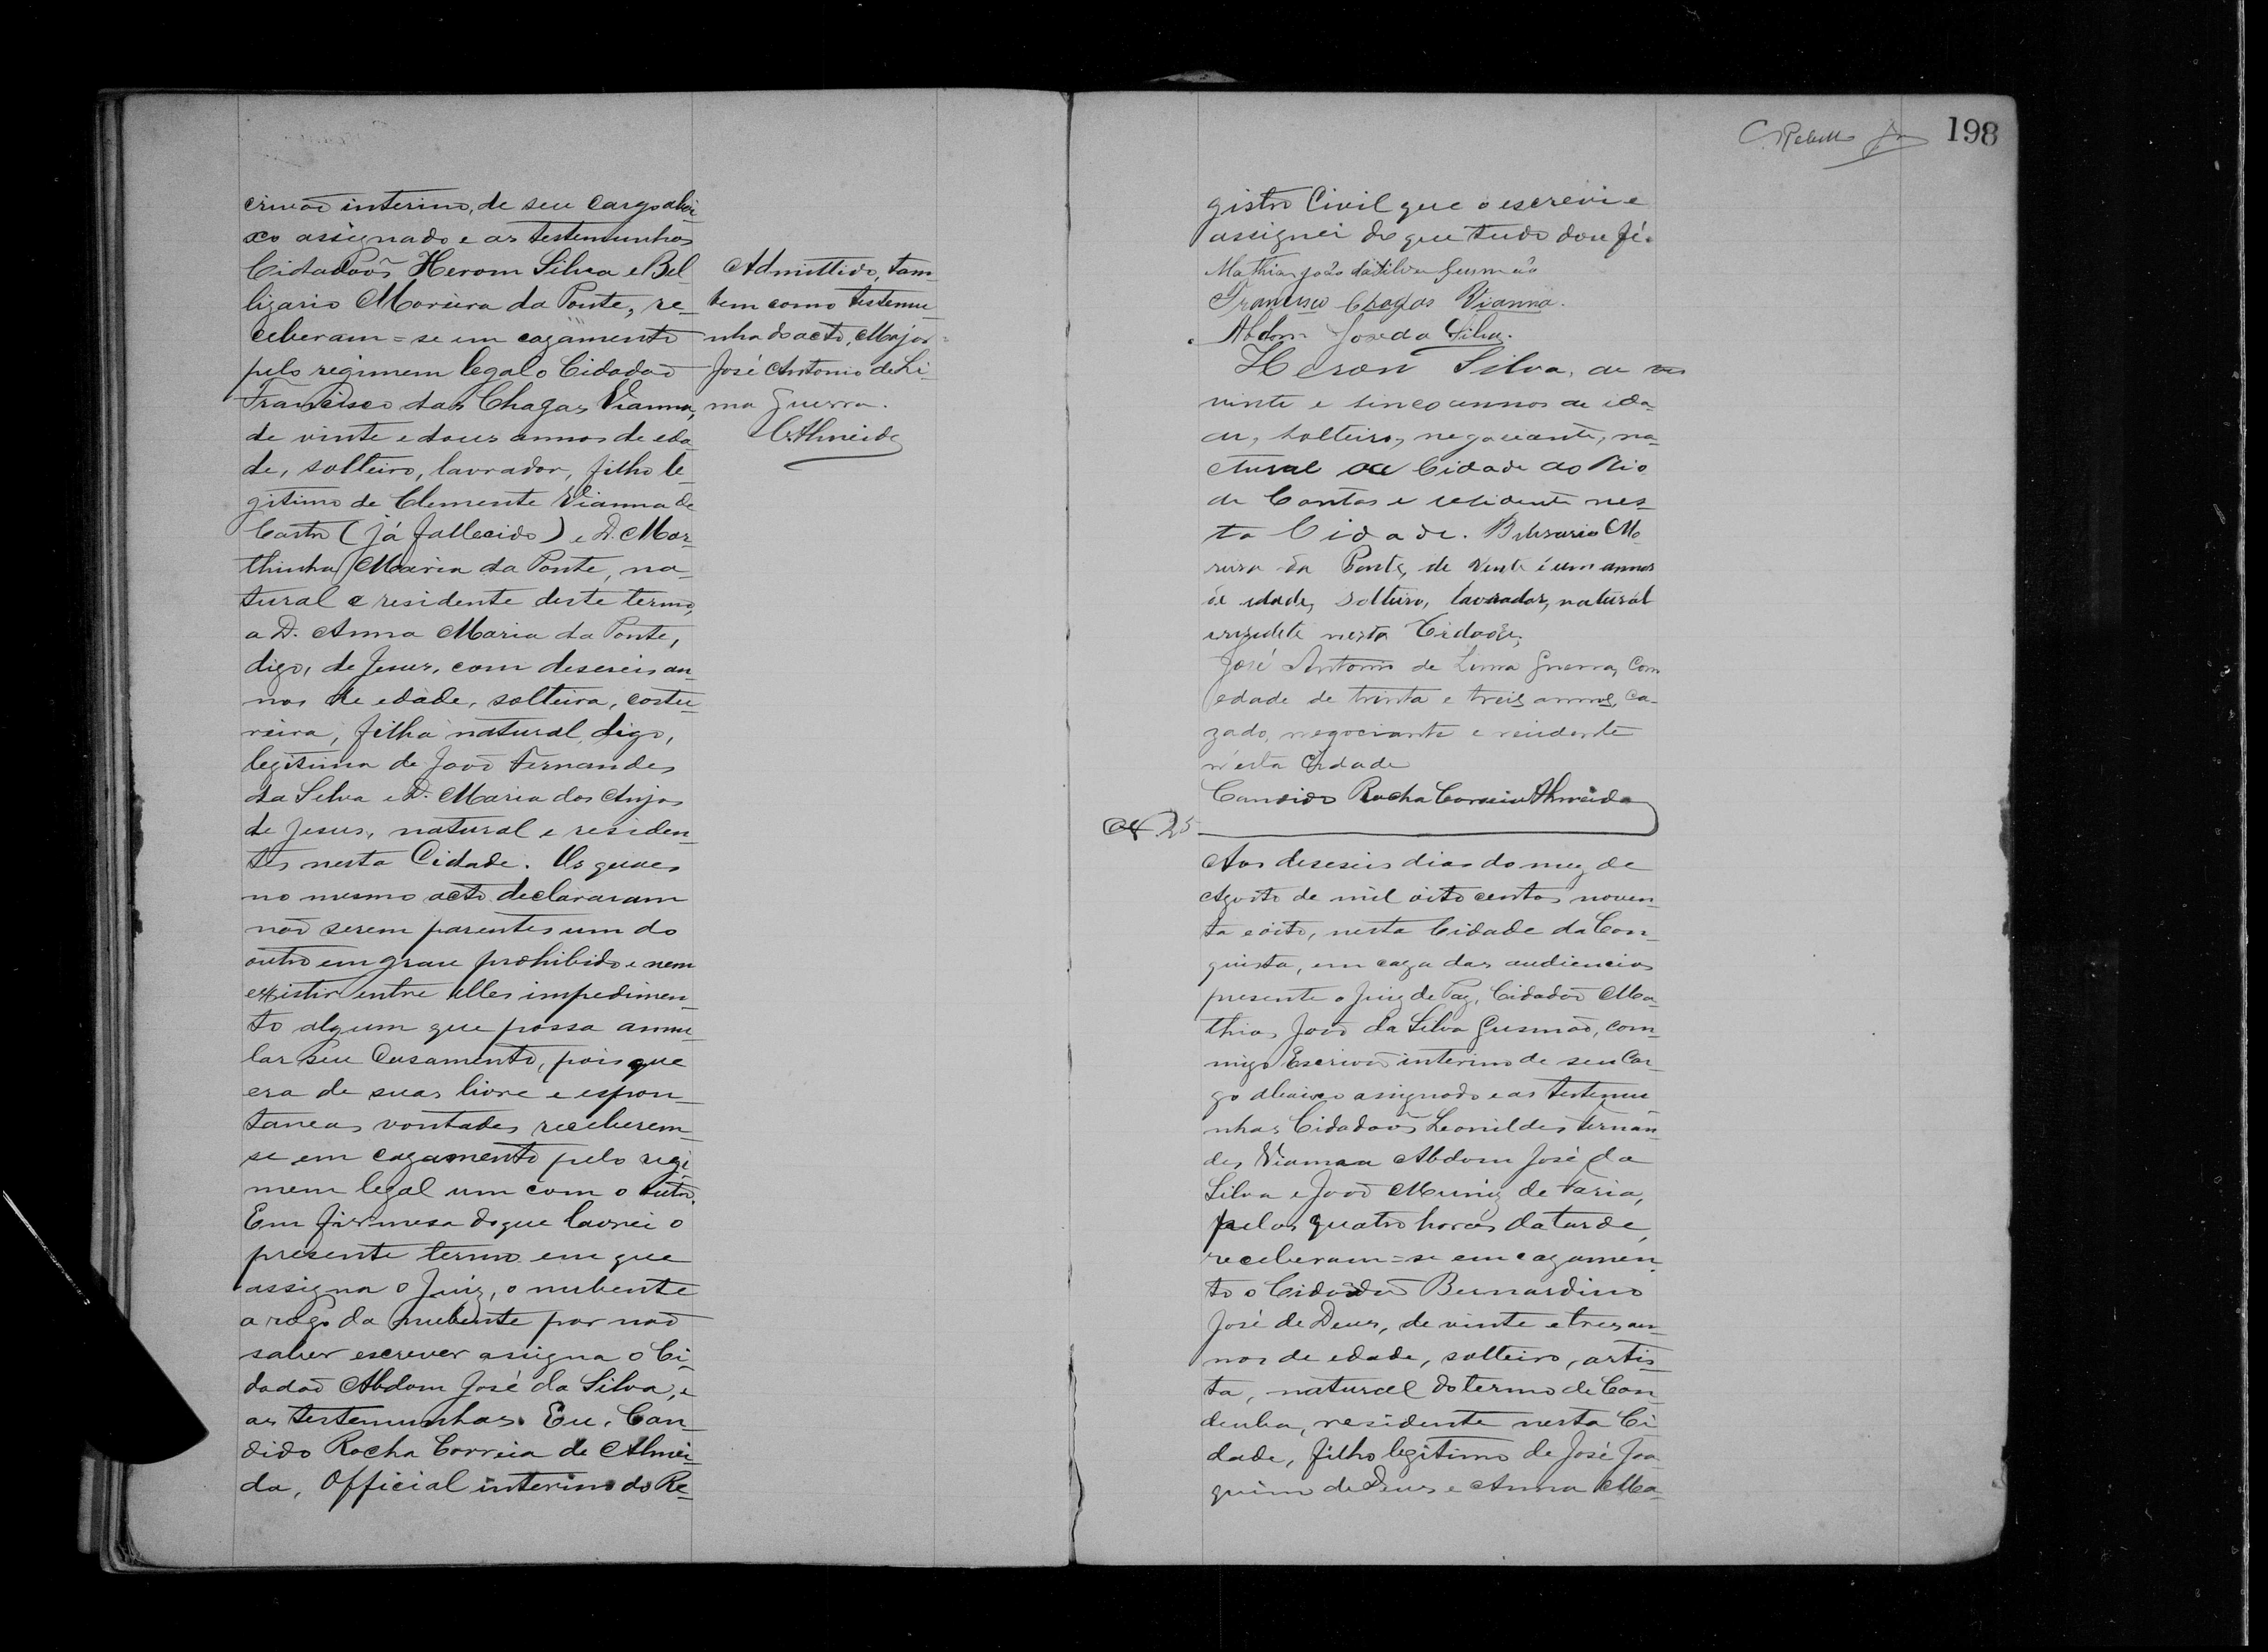 crivaõ interino, de seu cargo abai-
xo assignado e as testemunhas
Cidadaõs Herom Silva e Bel-
lizario Moreira da Ponte, re-
ceberam=se em cazamento
pelo regimem legal o Cidadaõ
Francisco das Chagas Vianna,
de vinte e dous annos de eda-
de, solteiro, lavrador, filho le-
gitimo de Clemente Vianna de
Castro (já fallecido) e D. Mar-
thinha Maria da Ponte, na-
tural e residente deste termo,
a D. Anna Maria da Ponte,
digo, de Jesus, com deseseis an-
nos de edade, solteira, costu-
reira, filha natural, digo,
legitima de Joaõ Fernandes
da Silva e D. Maria dos Anjos
de Jesus, natural e residen-
tes nesta Cidade. Os quaes
no mesmo acto declararam
naõ serem parentes um do
outro em grau prohibido e nem
existir entre elles impedimen-
to algum que possa annu-
lar seu Casamento, pois que
era de suas livre e espon-
taneas vontades receberem-
se em cazamento pelo regi-
mem legal um com o outro.
Em firmesa do que lavrei o
presente termo em que
assigna o Juiz, o nubente
a rogo da nubente por naõ
saber escrever assigna o Ci-
dadaõ Abdom José da Silva, e
as testemunhas. Eu, Can-
dido Rocha Correia de Almei-
da, Official interino do Re-
Admittido, tam-
bem como testemu-
nha do acto, Major
José Antonio de Li-
ma Guerra.
CAlmeida
C. Rebello Jr
198
gistro Civil que o escrevi e
assignei do que tudo dou fé.
Mathias João da Silva Gusmão
Francisco Chagas Vianna.
Abdom José da Silva.
Heron Silva, de
vinte e sinco annos de ida-
de, solteiro, negociante, na-
tural da Cidade do Rio
de Contas e residente nes-
ta Cidade. Belisario Mo-
reira da Ponte, de vinte é um annos
de edade, solteiro, lavrador, natural
e rezidete nesta Cidade,
José Antonio de Lima Guerra, com
edade de trinta e treis annos, ca-
zado, negociante e reisidente
n'esta Cidade
Candido Rocha Correia Almeida
N. 25
Aos deseseis dias do mez de
Agosto de mil oito centos noven-
ta e oito, nesta Cidade da Con-
quista, em caza das audiencias
presente o Juiz de Paz, Cidadaõ Ma-
thias Joaõ da Silva Gusmaõ, com-
migo Escrivaõ interino de seu Car-
go abaixo assignado e as testemu-
nhas Cidadaõs Leonildes Fernan-
des Vianna Abdom José da
Silva e Joaõ Muniz de Faria,
pelas quatro horas da tarde,
receberam=se em cazamen-
to o Cidadaõ Bernardino
José de Deus, de vinte e tres an-
nos de edade, solteiro, artis-
ta, natural do termo de Con-
deuba, residente nesta Ci-
dade, filho legitimo de José Joa-
quim de Deus e Anna Ma-